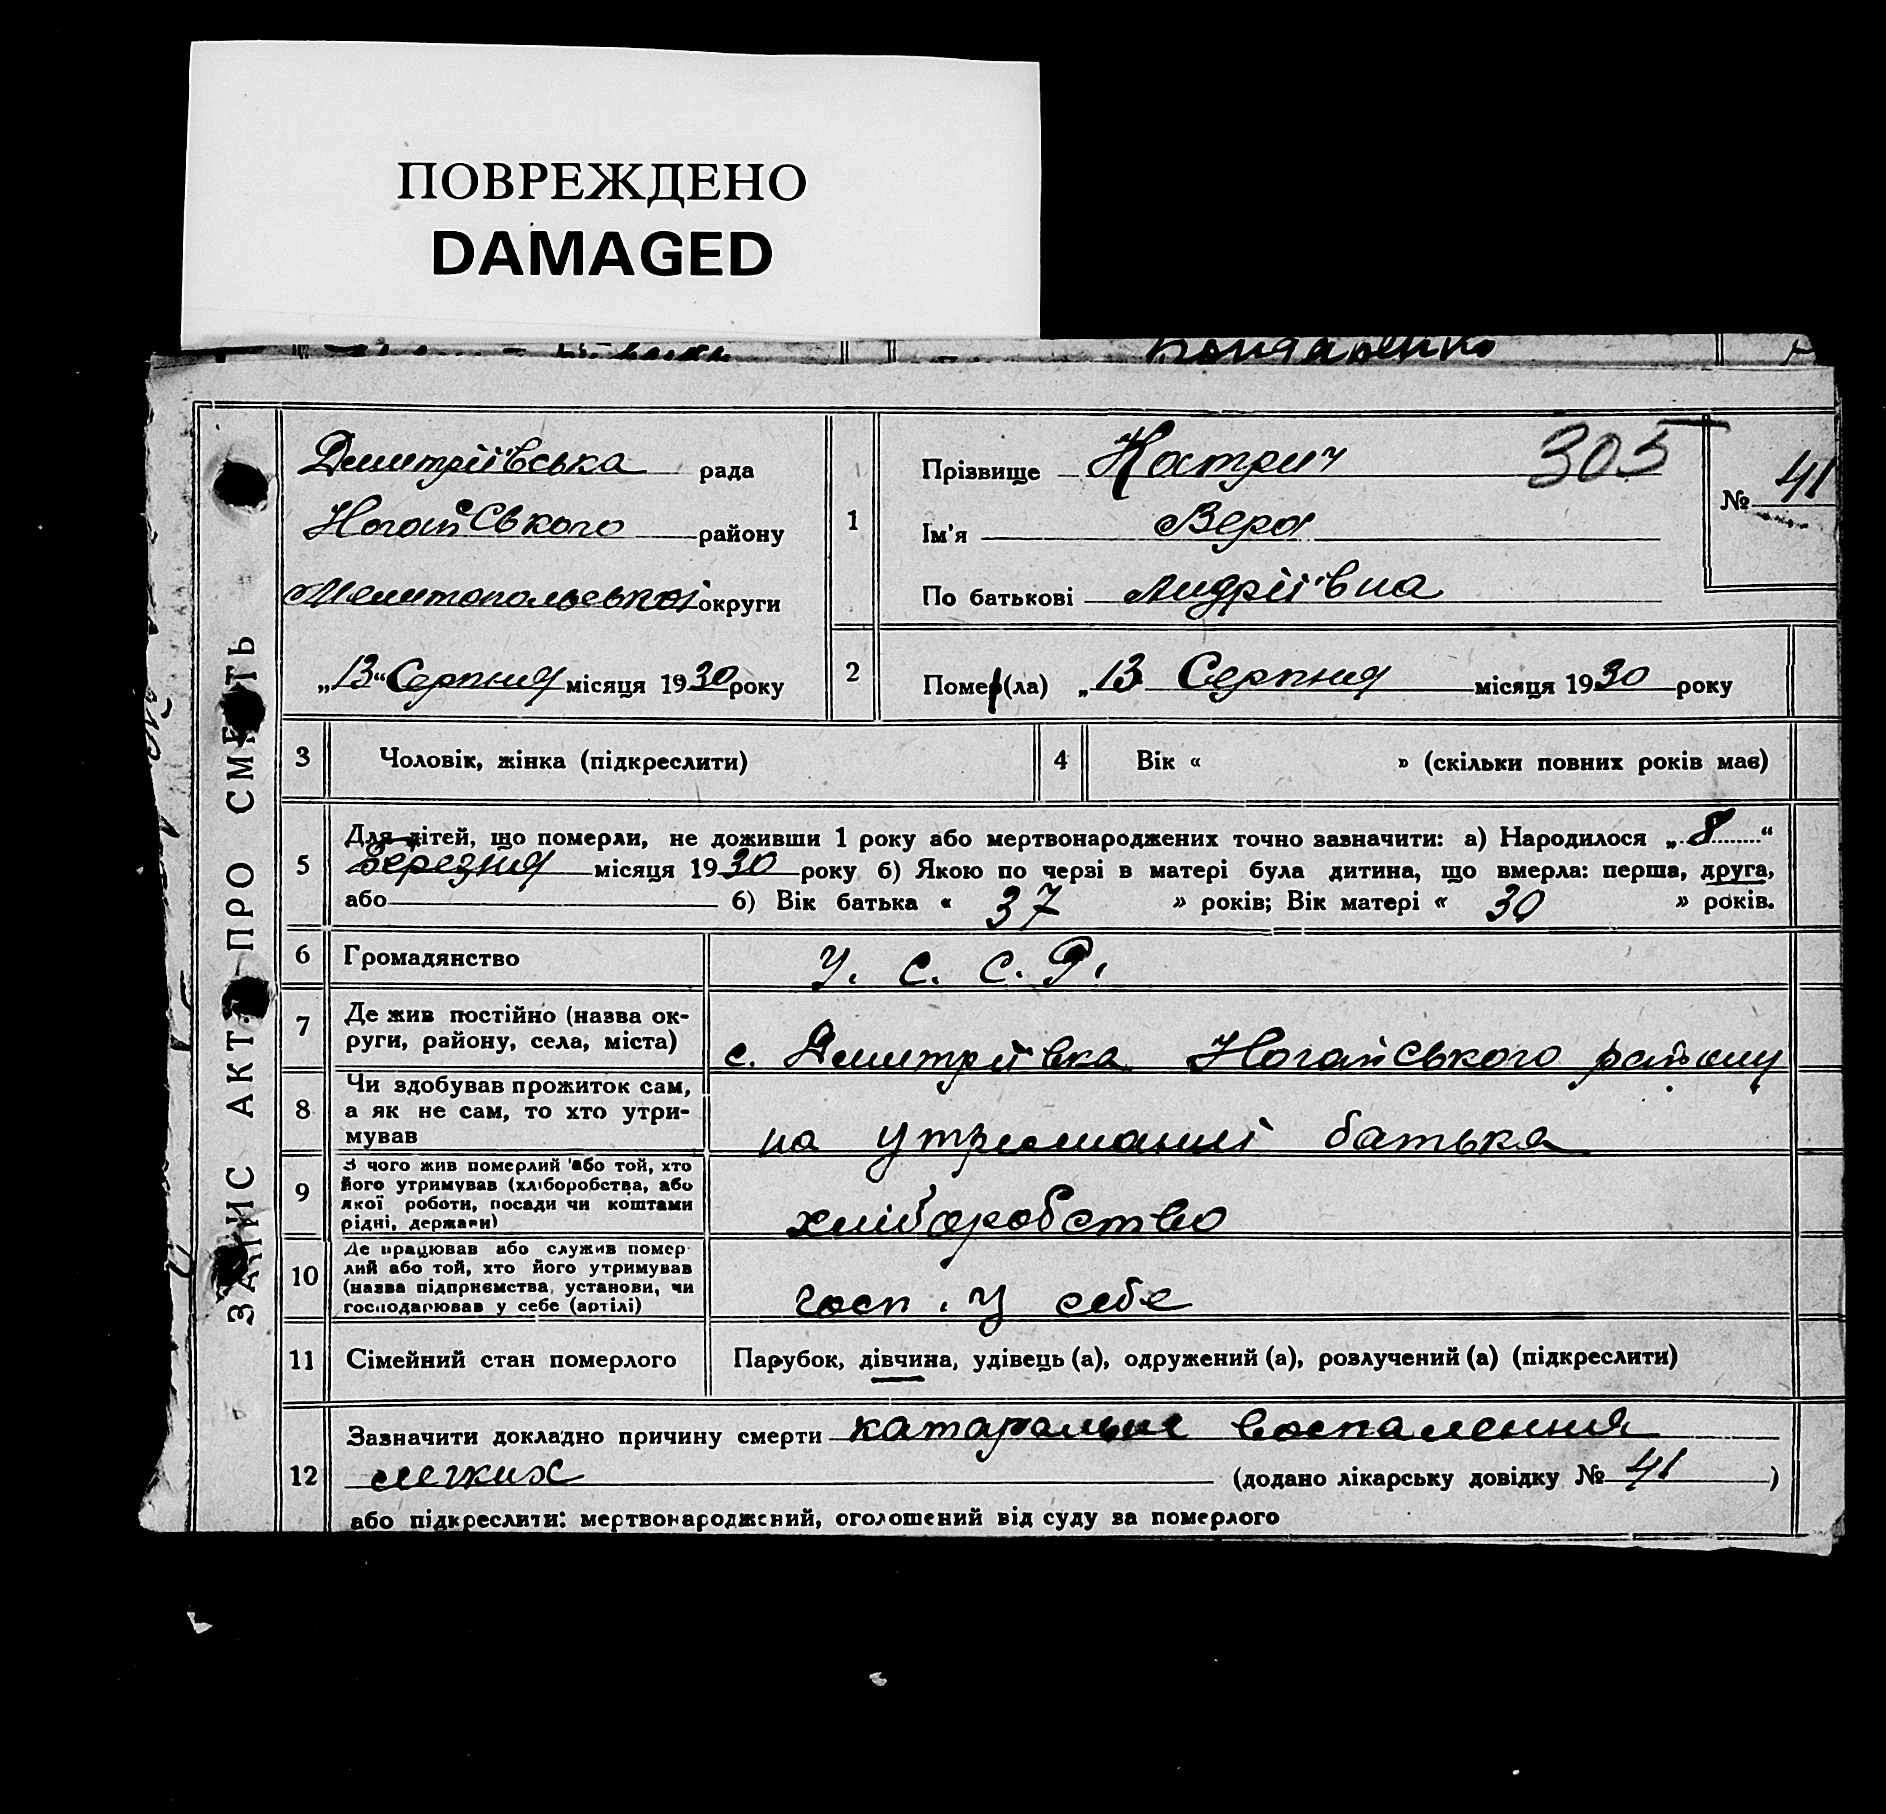 ПОВРЕЖДЕНО
DAMAGED
Бондаренко
ЗАПИС АКТА ПРО СМЕРТЬ
Дмитріївська рада
Ногайського району
Мелитопольської округи
„13“ Серпня місяця 1930 року
1
Прізвище Кострич 305
Ім'я Вера
По батькові Андріївна
№ 41
2
Помер(ла) „13 Серпня місяця 1930 року
3 Чоловік, жінка (підкреслити)
4 Вік « » (скільки повних років має)
5 Для дітей, що померли, не доживши 1 року або мертвонароджених точно зазначити: а) Народилося „8“
Березня місяця 1930 року б) Якою по черзі в матері була дитина, що вмерла: перша, друга,
або б) Вік батька « 37 » років; Вік матері « 30 » років.
6 Громадянство У. С. С. Р.
7 Де жив постійно (назва ок-
руги, району, села, міста) с. Дмитриївка Ногайського району
8 Чи здобував прожиток сам,
а як не сам, то хто утри-
мував на утриманні батька
9 З чого жив померлий або той, хто
його утримував (хліборобства, або
якої роботи, посади чи коштами
рідні, держави) хліборобство
10 Де працював або служив помер-
лий або той, хто його утримував
(назва підприємства, установи, чи
господарював у себе (артілі) госп. у себе
11 Сімейний стан померлого Парубок, дівчина, удівець (а), одружений (а), розлучений (а) (підкреслити)
12 Зазначити докладно причину смерти катаральне воспаления
легких (додано лікарську довідку № 41 )
або підкреслити: мертвонароджений, оголошений від суду за померлого